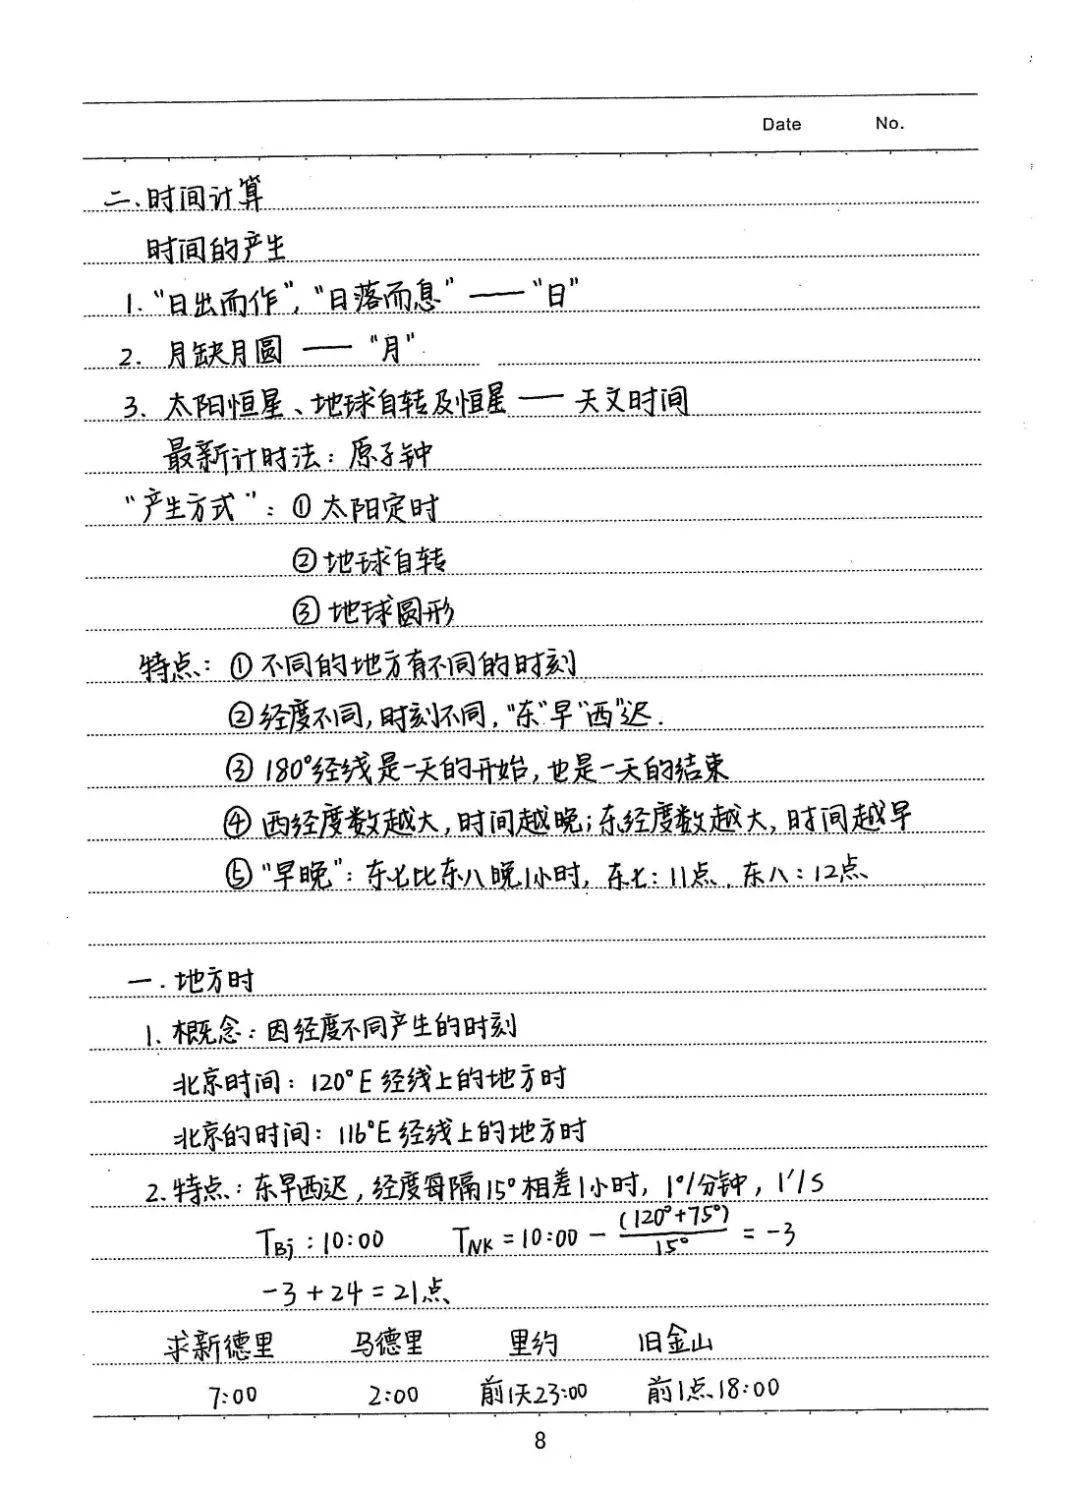 Date No.
二.时间计算
时间的产生
1. “日出而作”,“日落而息” —— “日”
2. 月缺月圆 —— “月”
3. 太阳恒星、地球自转及恒星 —— 天文时间
最新计时法:原子钟
“产生方式”:①太阳定时
②地球自转
③地球圆形
特点:①不同的地方有不同的时刻
②经度不同,时刻不同,“东”早“西”迟.
③180°经线是一天的开始,也是一天的结束
④西经度数越大,时间越晚;东经度数越大,时间越早
⑤“早晚”:东七比东八晚1小时,东七:11点,东八:12点
一.地方时
1.概念:因经度不同产生的时刻
北京时间:120°E经线上的地方时
北京的时间:116°E经线上的地方时
2.特点:东早西迟,经度每隔15°相差1小时,1°/分钟,1′/S
TBj:10:00 TNK=10:00-(120°+75°)/15°=-3
-3+24=21点
求新德里 马德里 里约 旧金山
7:00 2:00 前1天23:00 前1点18:00
8